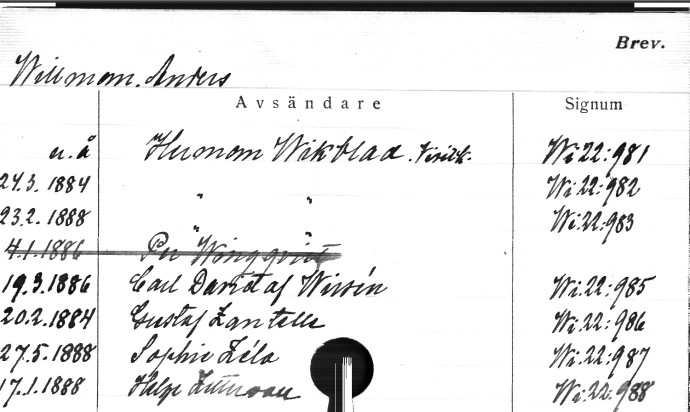 Brev.
Willman, Anders
Avsändare Signum
u. å Herman Wikblad. Visitk. Wi 22:981
24.3. 1884 " " Wi 22:982
23.2. 1888 " " Wi 22:983
4.1.1886 Per
19.3.1886 Carl David af Wirsén Wi 22:985
20.2.1884 Gustaf Zantelli Wi 22:986
27.5.1888 Sophie Zéla Wi 22:987
17.1.1888 Helge Wi 22:988